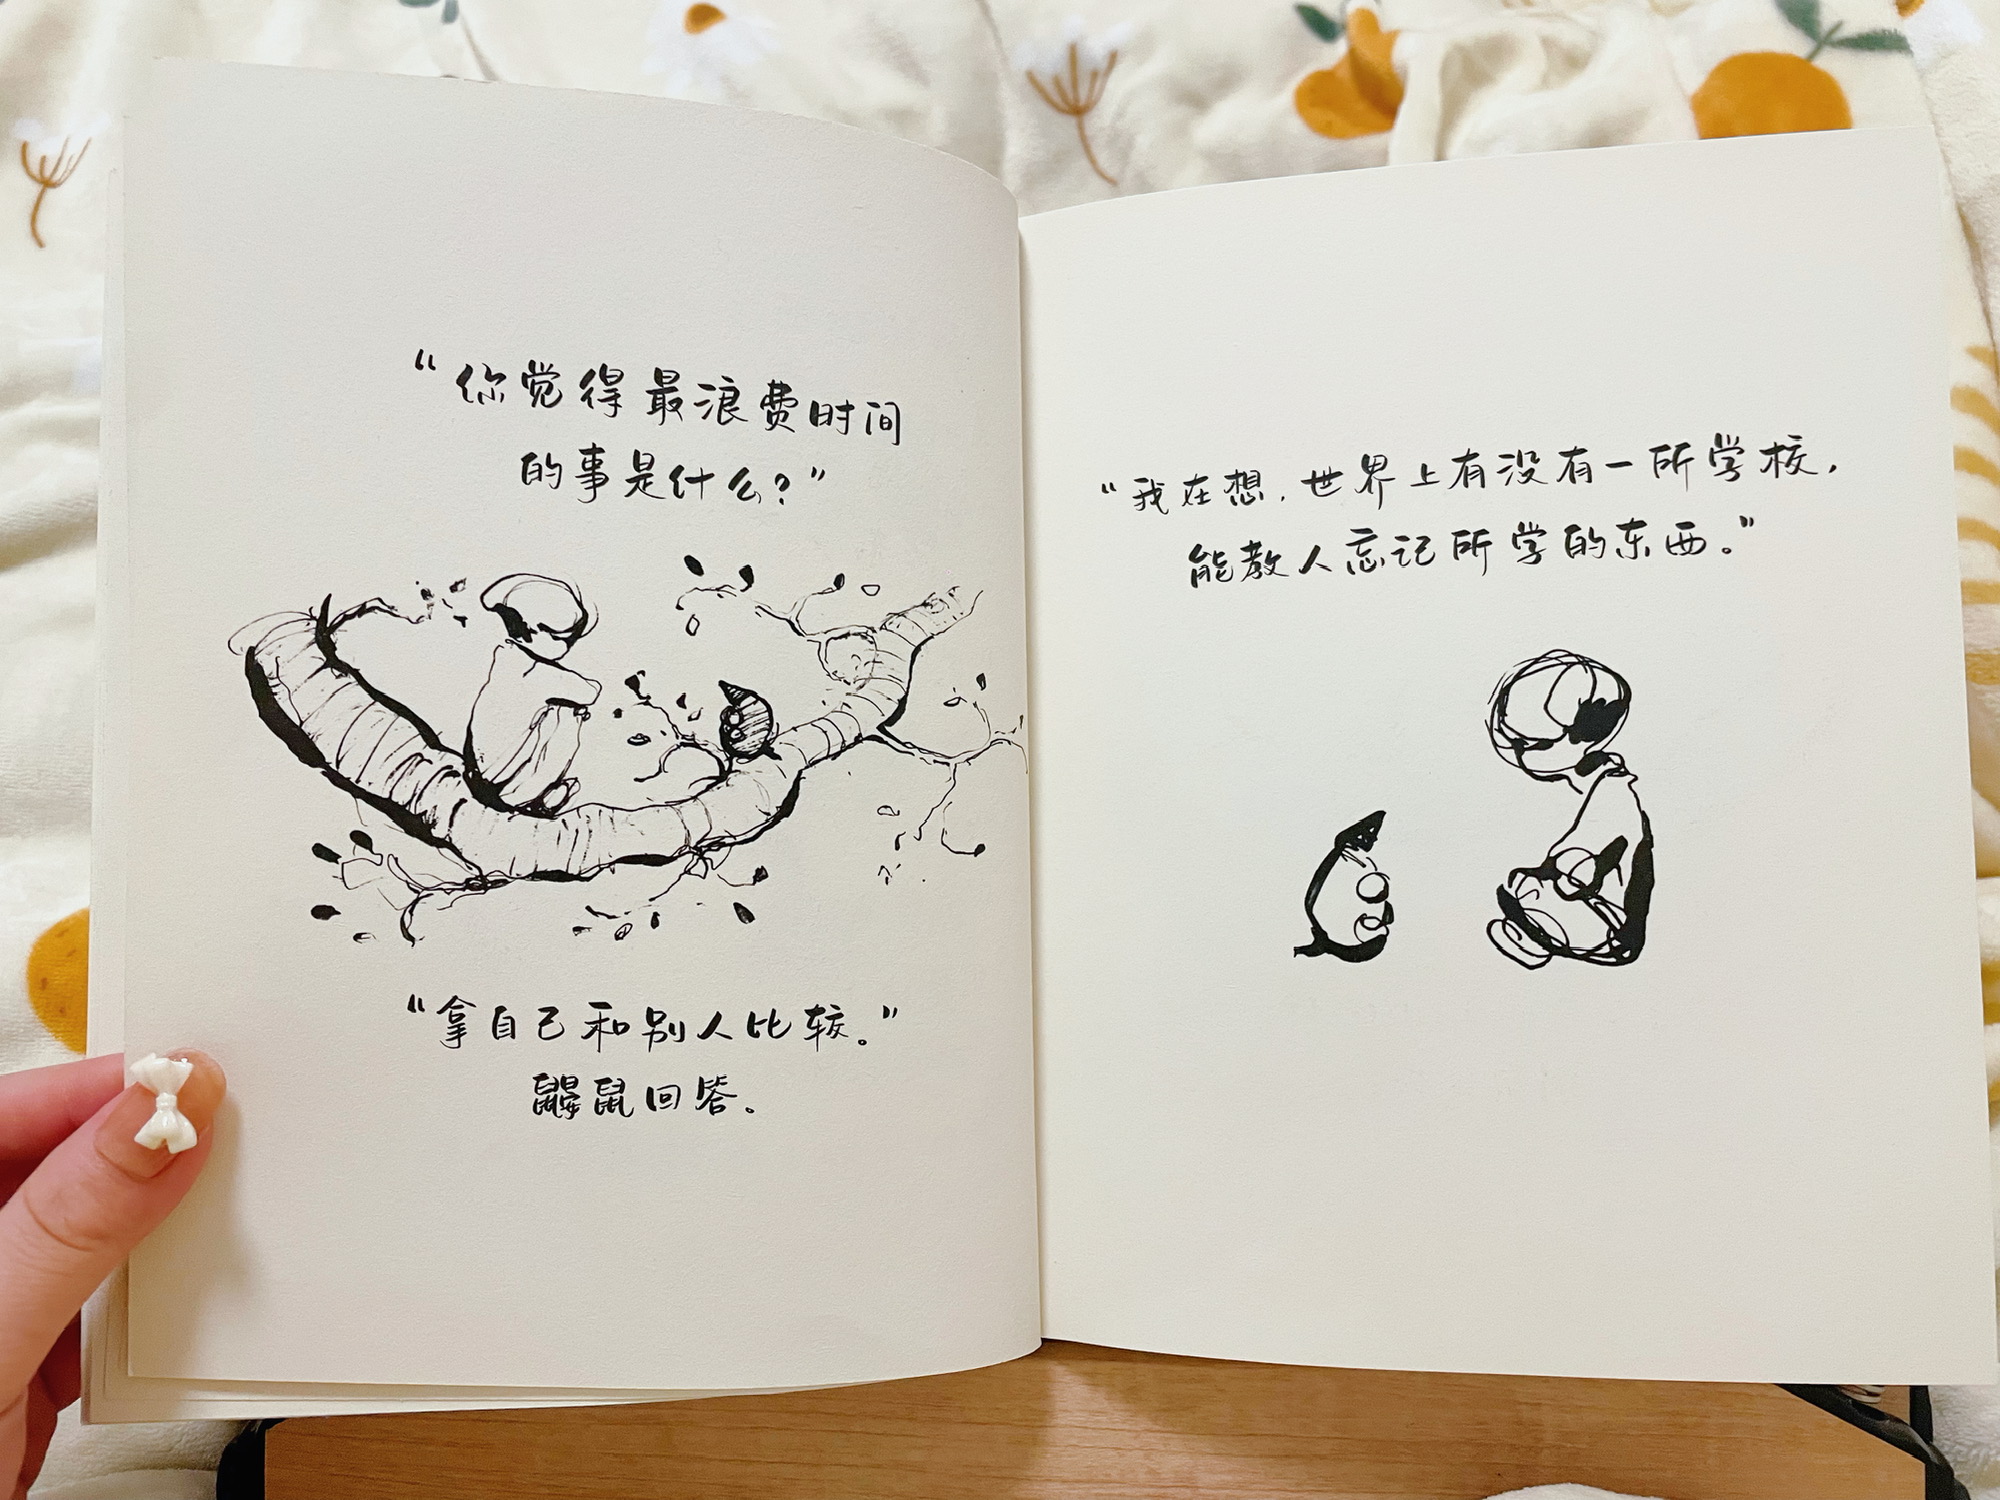 “你觉得最浪费时间
的事是什么？”
“拿自己和别人比较。”
鼹鼠回答。
“我在想，世界上有没有一所学校，
能教人忘记所学的东西。”